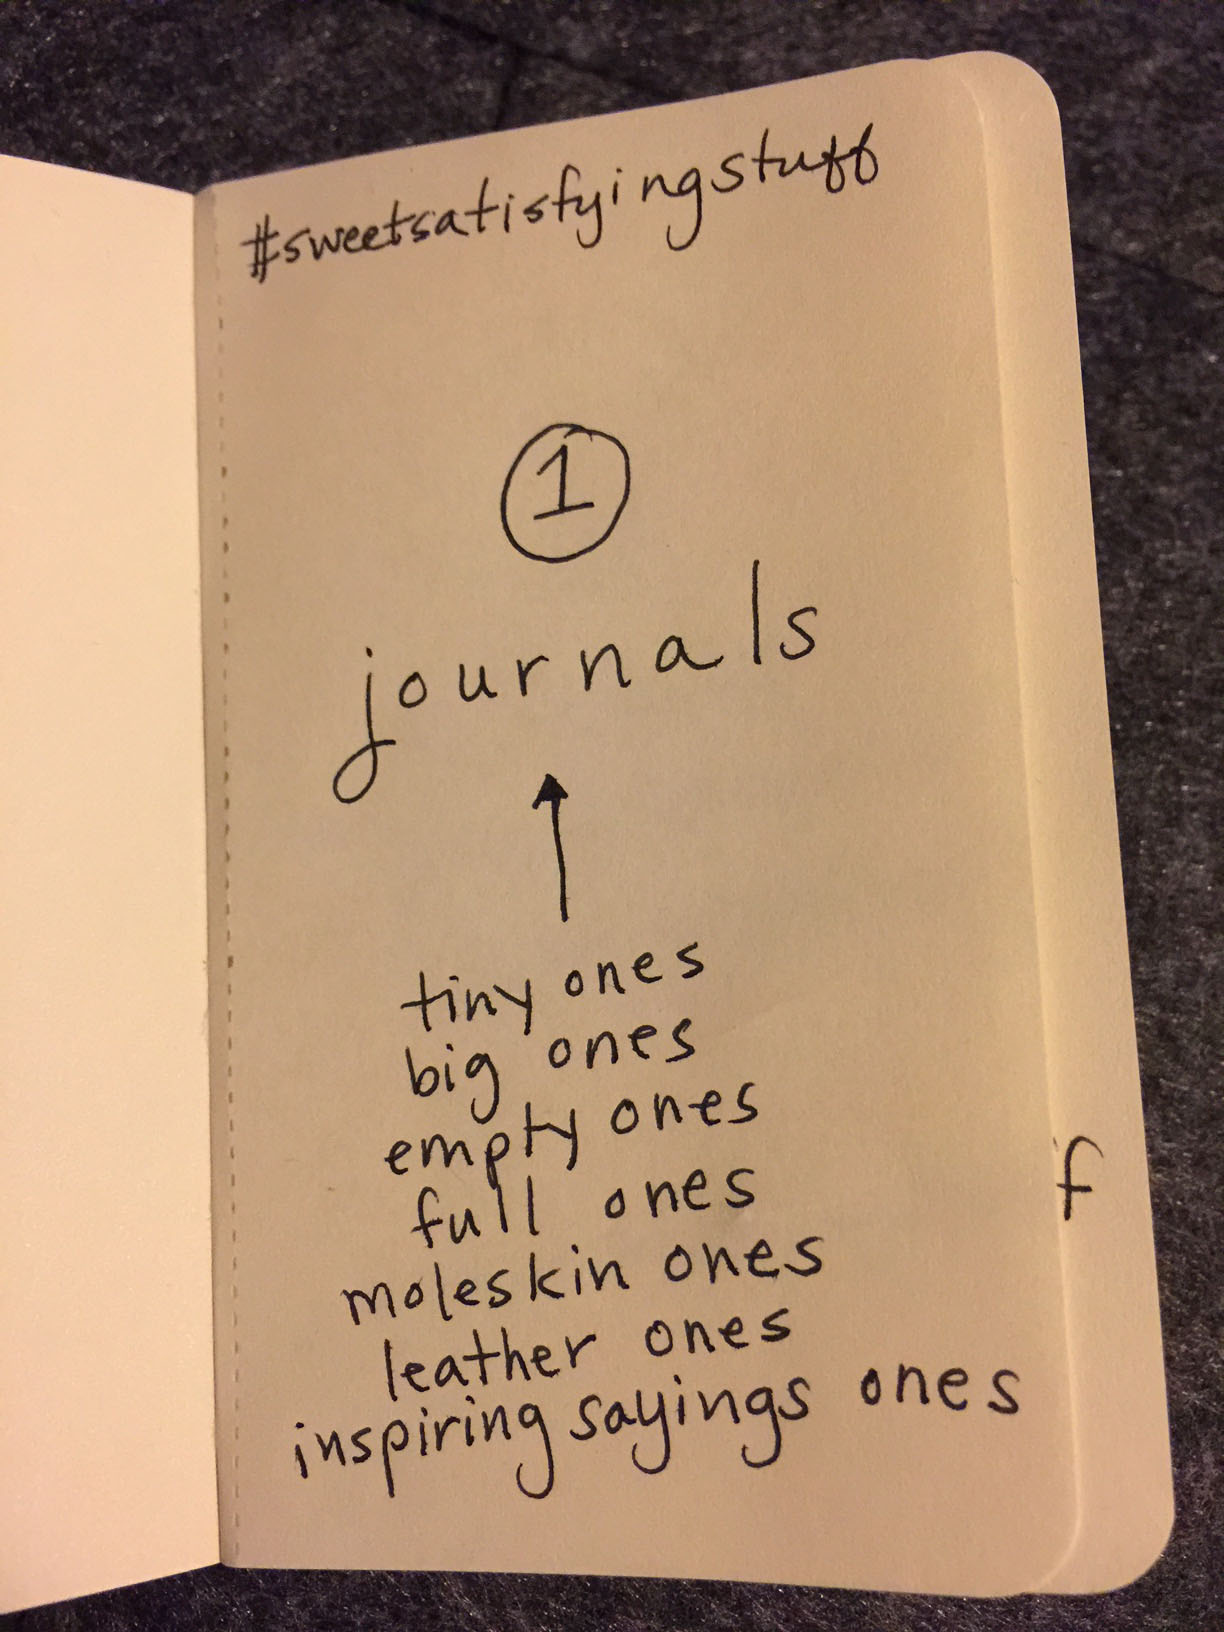 #sweetsatisfyingstuff
1
journals
tiny ones
big ones
empty ones
full ones
f
moleskin ones
leather ones
inspiring sayings ones